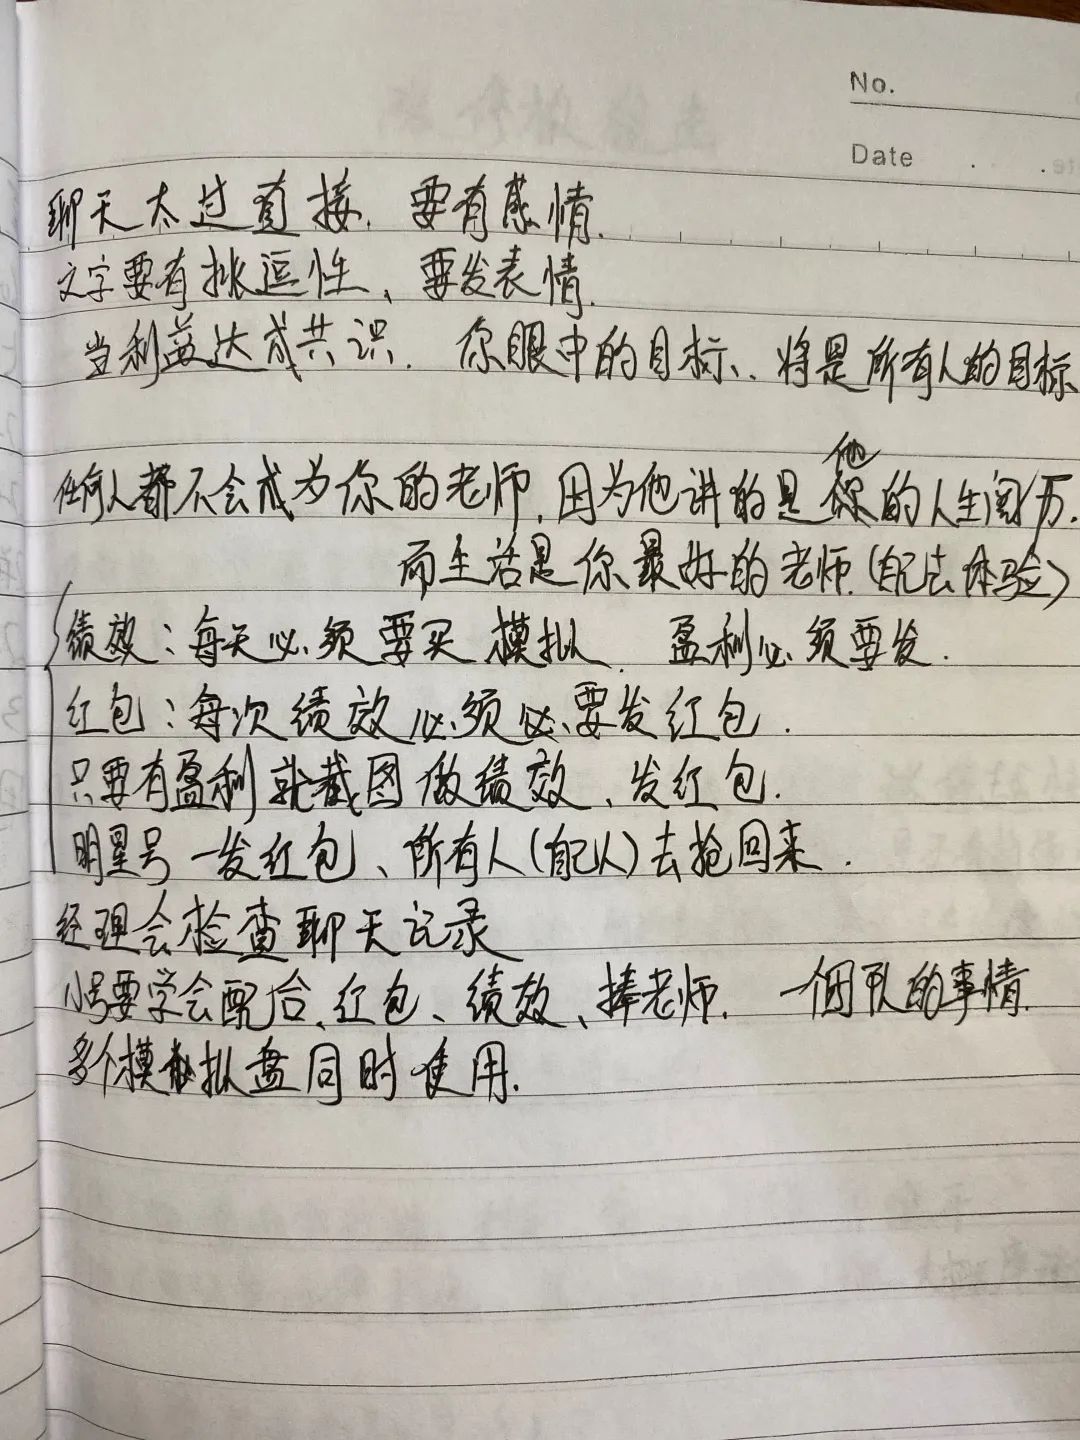 No.
Date
聊天太过直接. 要有感情.
文字要有挑逗性、要发表情.
当利益达成共识. 你眼中的目标、将是所有人的目标
任何人都不会成为你的老师.因为他讲的是他的人生阅历.
而生活是你最好的老师.(自己去体验)
绩效:每天必须要买模拟. 盈利必须要发.
红包:每次绩效必须必要发红包.
只要有盈利就截图做绩效、发红包.
明星号一发红包、所有人(自己人)去抢回来.
经理会检查聊天记录
小号要学会配合、红包、绩效、捧老师. 一个团队的事情.
多个模拟盘同时使用.